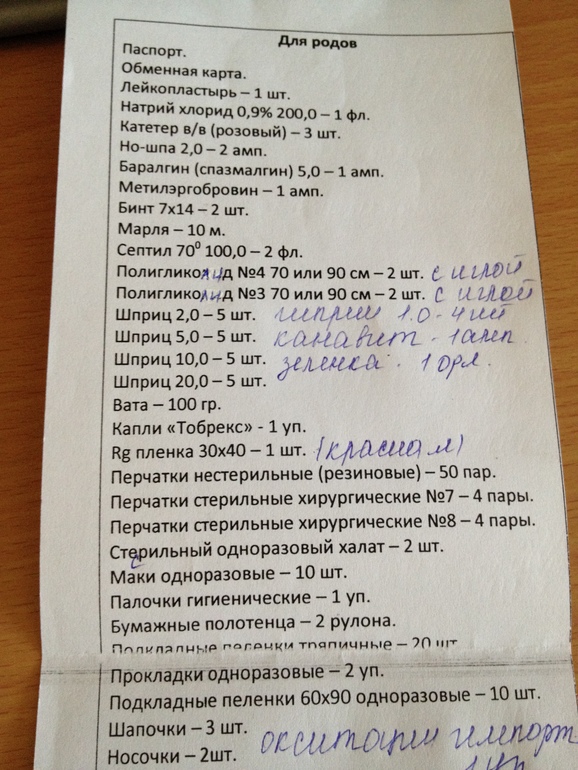 Для родов
Паспорт.
Обменная карта.
Лейкопластырь – 1 шт.
Натрий хлорид 0,9% 200,0 – 1 фл.
Катетер в/в (розовый) – 3 шт.
Но-шпа 2,0 – 2 амп.
Баралгин (спазмалгин) 5,0 – 1 амп.
Метилэргобровин – 1 амп.
Бинт 7х14 – 2 шт.
Марля – 10 м.
Септил 70⁰ 100,0 – 2 фл.
Полигликолид №4 70 или 90 см – 2 шт. с иглой
Полигликолид №3 70 или 90 см – 2 шт. с иглой
Шприц 2,0 – 5 шт. шприц 1.0 - 4 шт
Шприц 5,0 – 5 шт. канавит - 1 амп.
Шприц 10,0 – 5 шт. зеленка - 1 фл.
Шприц 20,0 – 5 шт.
Вата – 100 гр.
Капли «Тобрекс» - 1 уп.
Rg пленка 30х40 – 1 шт. (красная)
Перчатки нестерильные (резиновые) – 50 пар.
Перчатки стерильные хирургические №7 – 4 пары.
Перчатки стерильные хирургические №8 – 4 пары.
Стерильный одноразовый халат – 2 шт.
Маски одноразовые – 10 шт.
Палочки гигиенические – 1 уп.
Бумажные полотенца – 2 рулона.
Подкладные пеленки тряпичные – 20 шт
Прокладки одноразовые – 2 уп.
Подкладные пеленки 60х90 одноразовые – 10 шт.
Шапочки – 3 шт.
Носочки – 2шт. окситацин импорт
1 уп